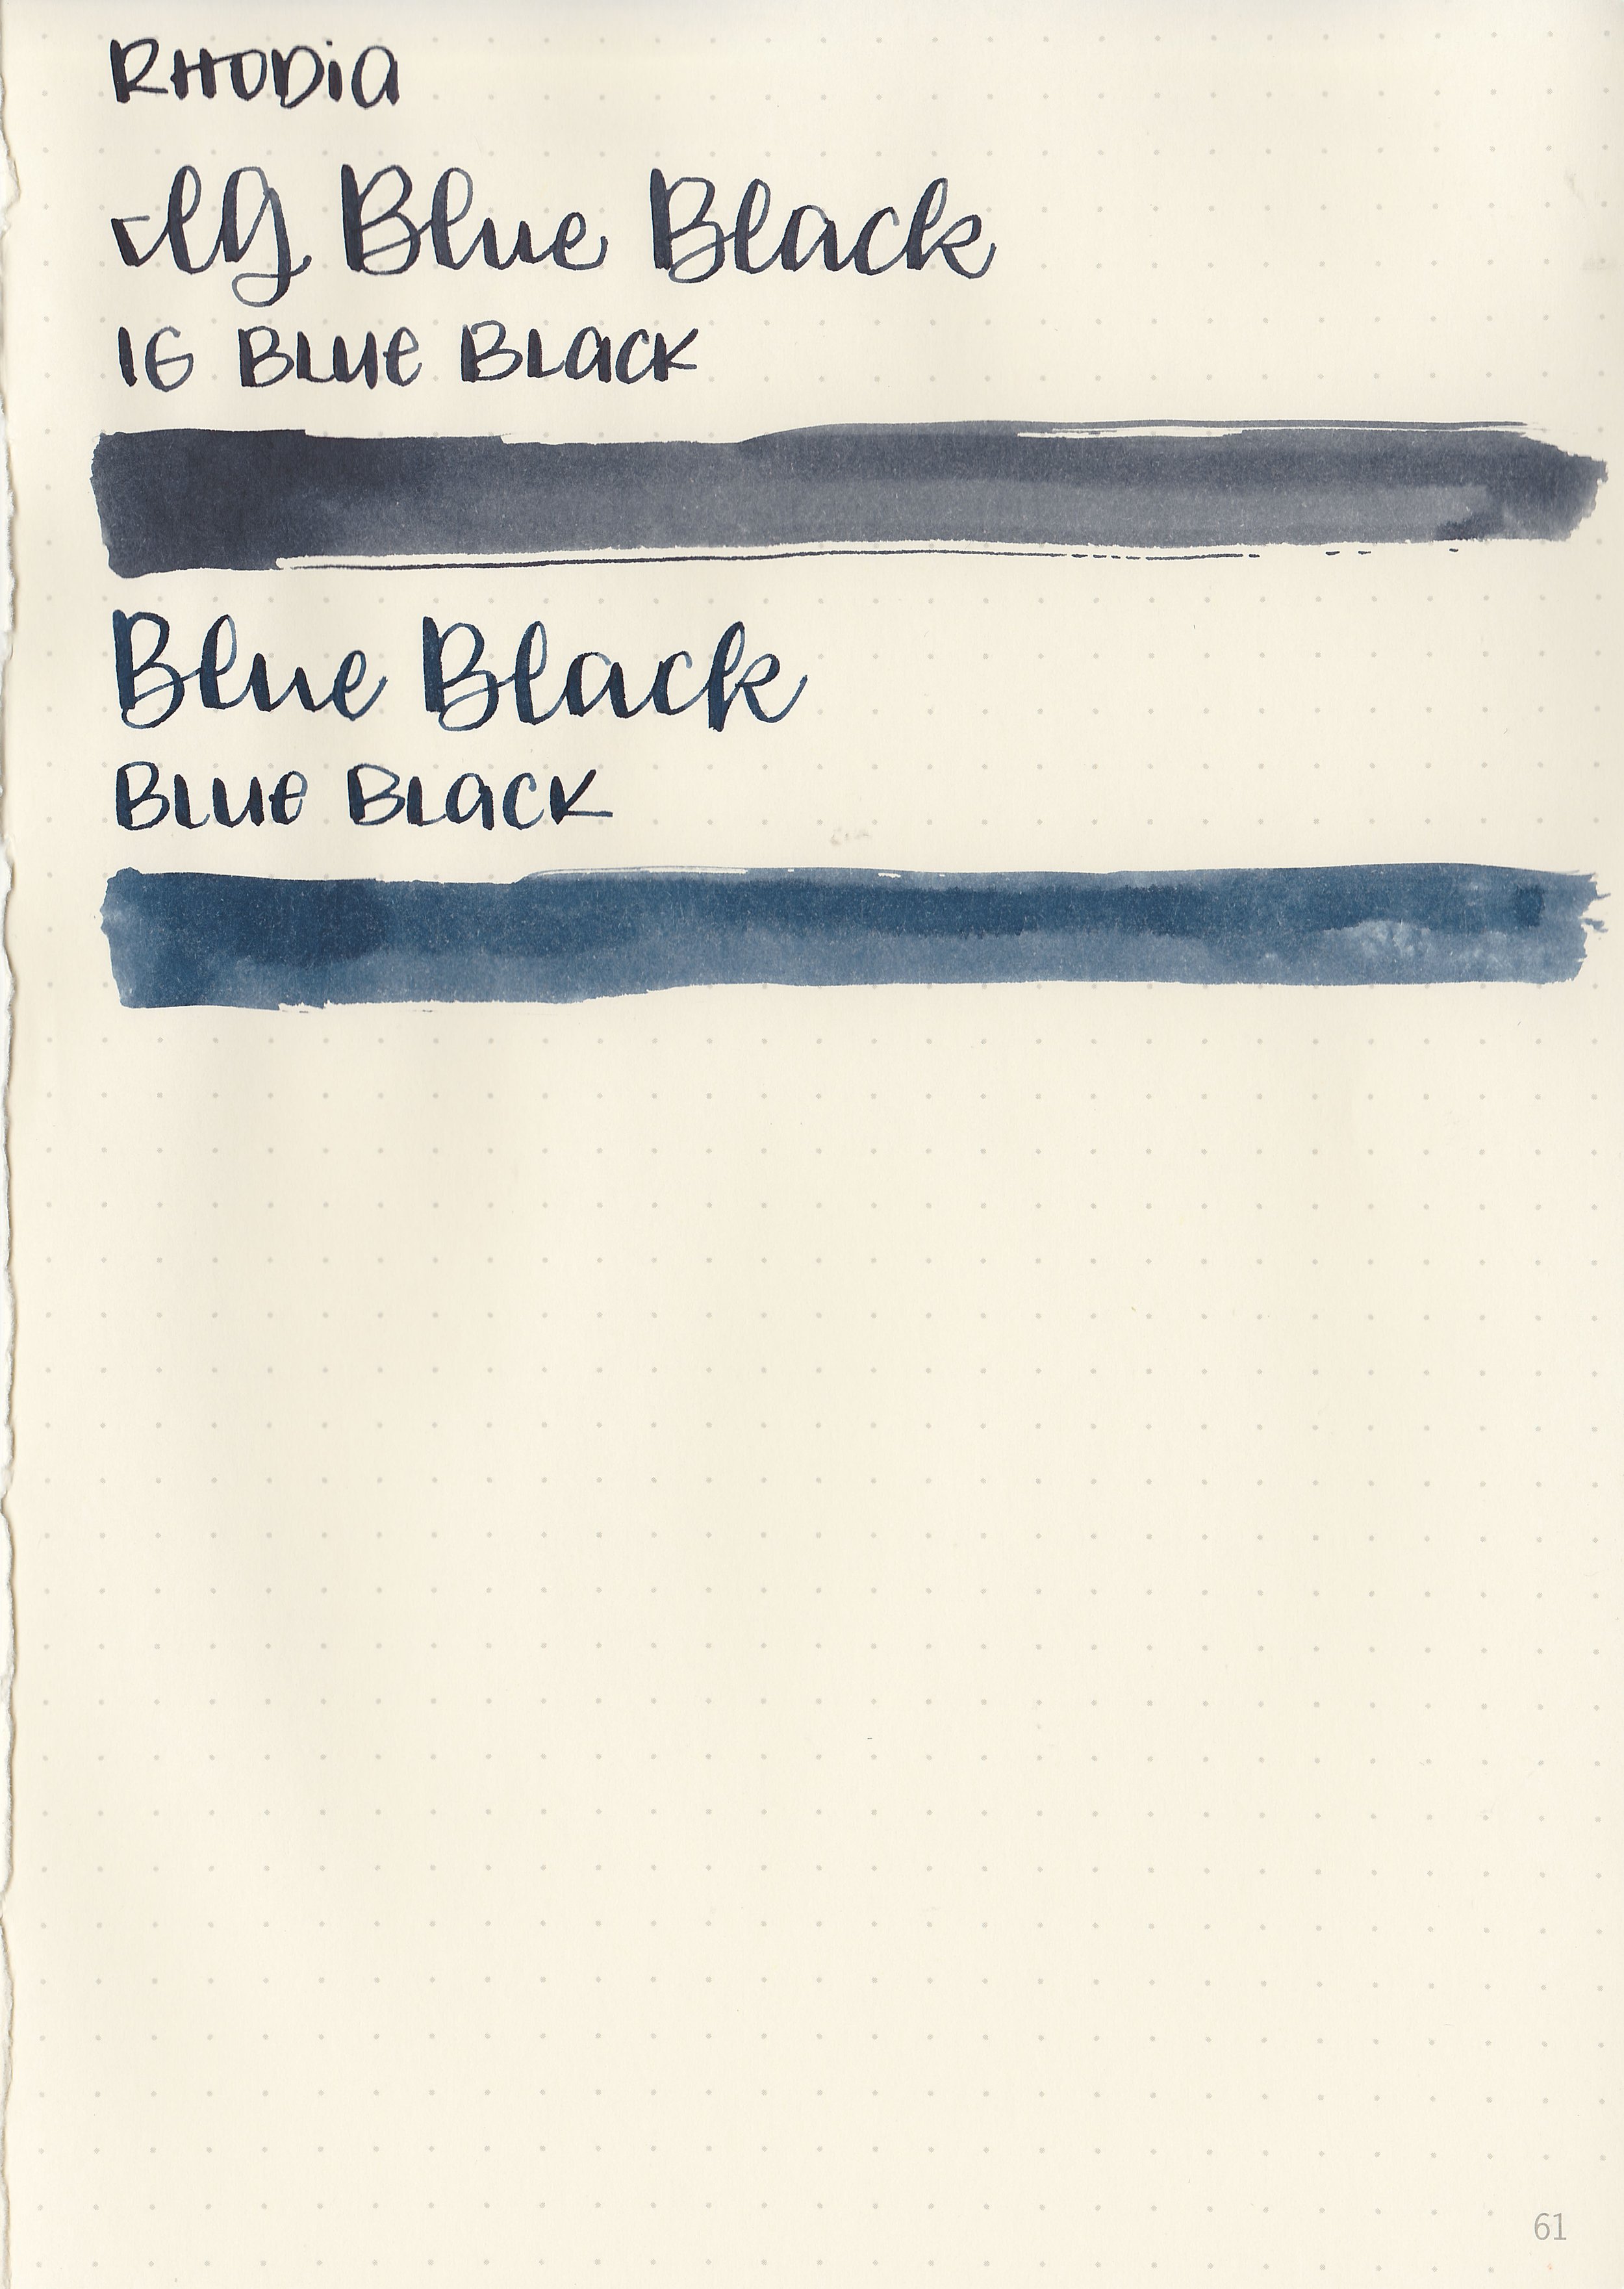 RHODIA
IG Blue Black
IG BLUE BLACK
Blue Black
BLUE BLACK
61